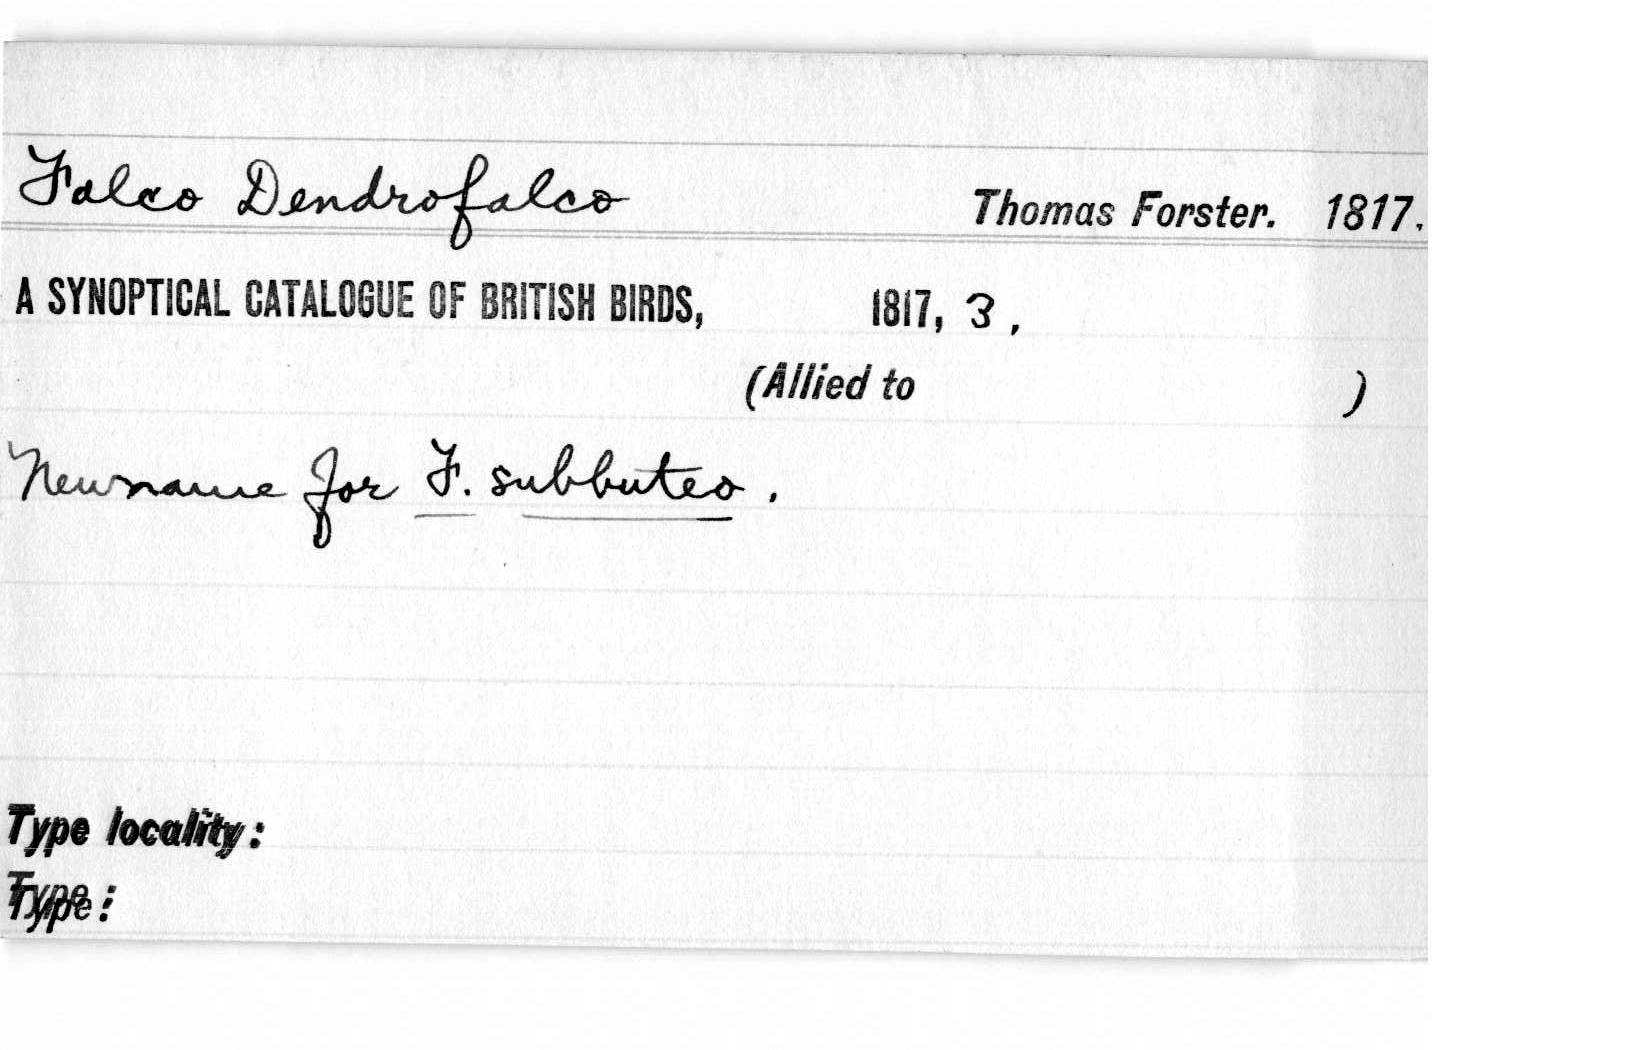 Falco Dendrofalco Thomas Forster. 1817.
A SYNOPTICAL CATALOGUE OF BRITISH BIRDS, 1817, 3.
(Allied to )
New name for F. subbuteo.
Type locality:
Type: